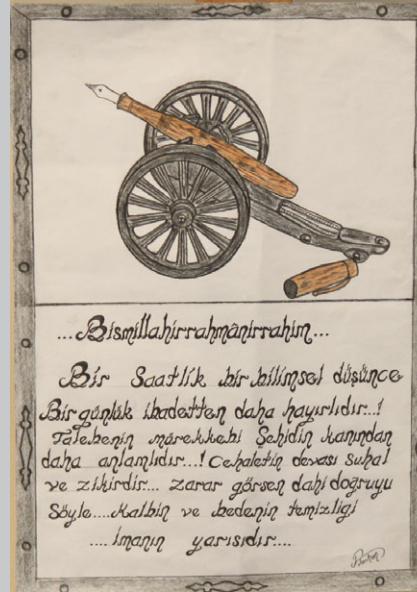 ...Bismillahirrahmânirrahim...
Bir Saatlik bir bilimsel düşünce
Bir günlük ibadetten daha hayırlıdır..!
Talebenin mürekkebi Şehidin kanından
daha anlamlıdır...! Cehaletin devası suhal
ve zikirdir... zarar görsen dahi doğruyu
Söyle.... Kalbin ve bedenin temizligi
.... imanın yarısıdır....